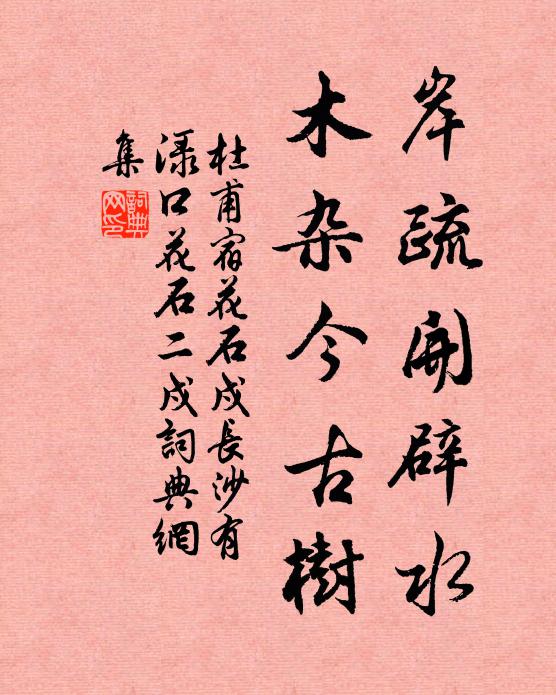 岸疏開辟水
木杂今古樹
杜甫宿花石戍長沙有
渌口花石二戍詞典網
集
詞典網印